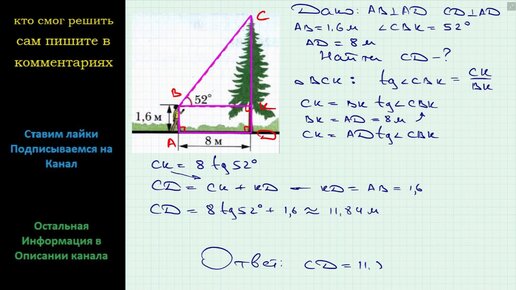 кто смог решить
сам пишите в
комментариях
Ставим лайки
Подписываемся на
Канал
Остальная
Информация в
Описании канала
C
B
52°
K
1,6 м
A
D
8 м
Дано: AB⊥AD CD⊥AD
AB=1,6м ∠CBK = 52°
AD = 8 м
Найти CD-?
△BCK: tg∠CBK = CK/BK
CK = BK tg∠CBK
BK = AD = 8 м
CK = AD tg∠CBK
CK = 8 tg 52°
CD = CK + KD — KD = AB = 1,6
CD = 8 tg 52° + 1,6 ≈ 11,84 м
Ответ: CD = 11,